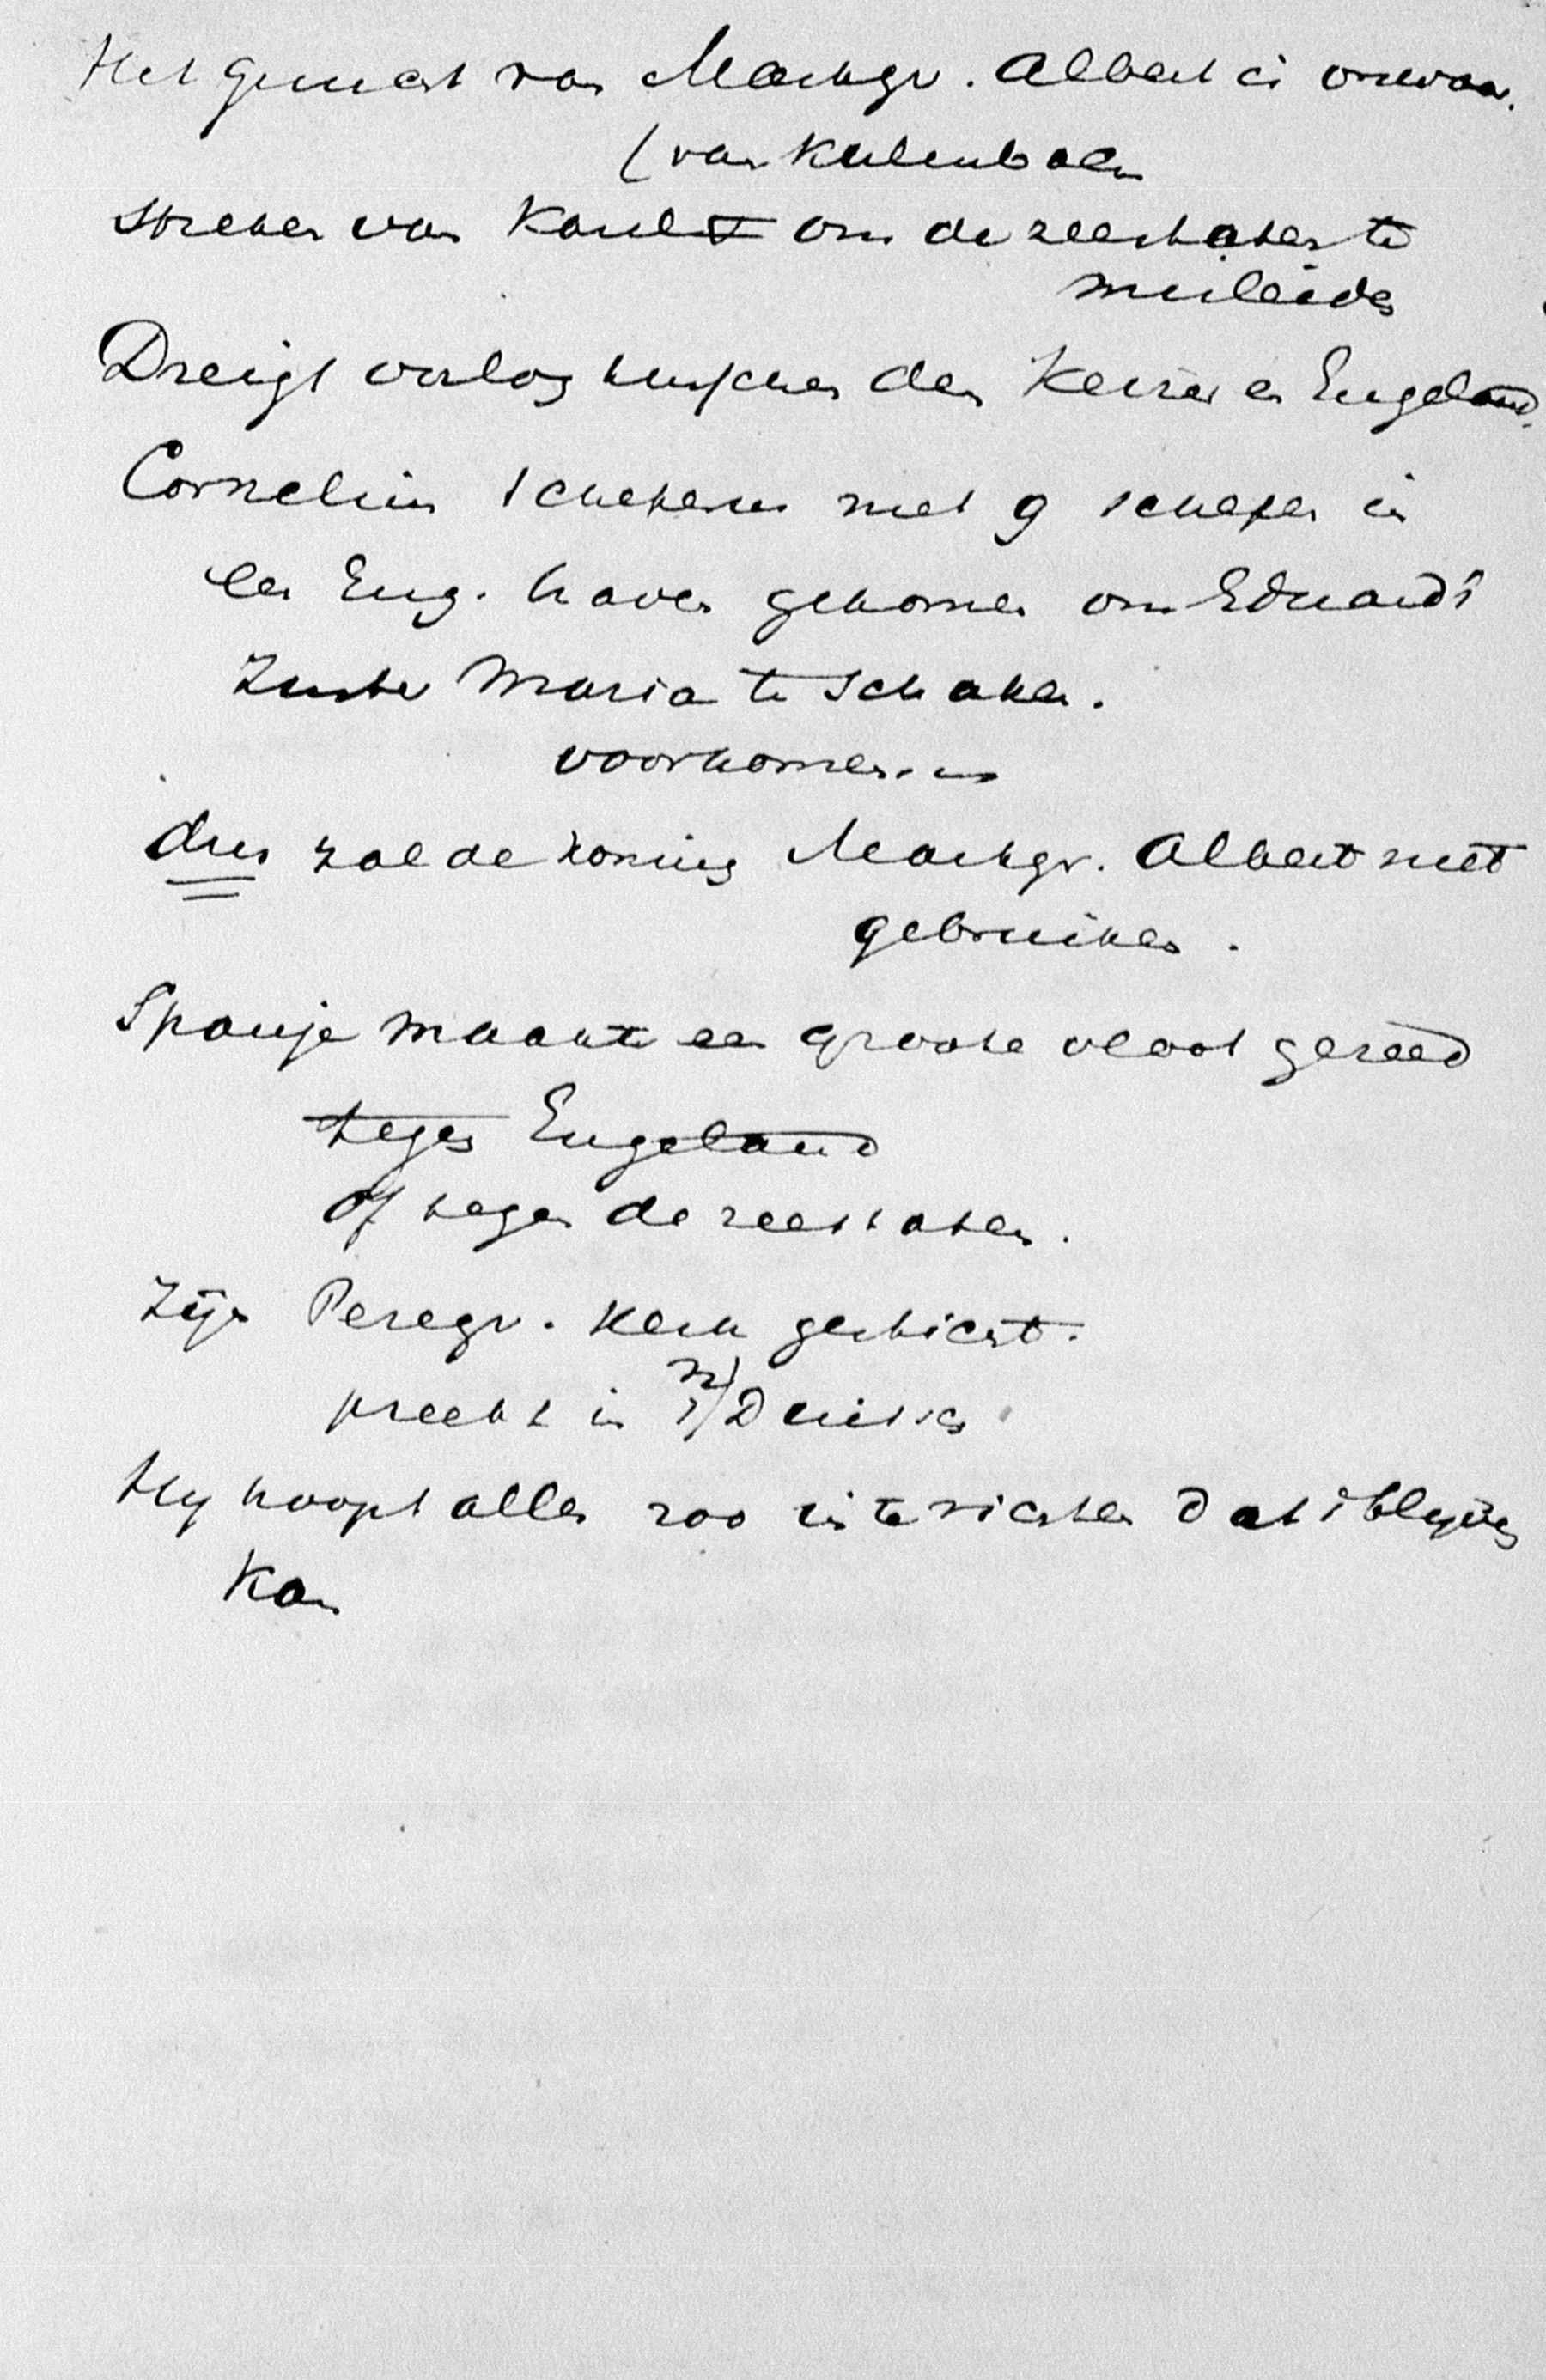 Het gerucht van Markgr. Albert is onwaar.
(van Kulenbach
streken van Karel V om de zeesteden te
misleiden
Dreigt oorlog tusschen den Keizer en Engeland.
Cornelius Schepperus met 9 schepen in
een Eng. haven gekomen om Eduards
Zuster Maria te schaken.
voorkomen
dus zal de koning Markgr. Albert niet
gebruiken.
Spanje maakt een groote vloot gereed
tegen Engeland
of tegen de zeesteden.
Zijn Peregr. Kerk gesticht.
preekt in 't Duitsch
Hij hoopt alles zoo in te richten dat 't blijven
kan